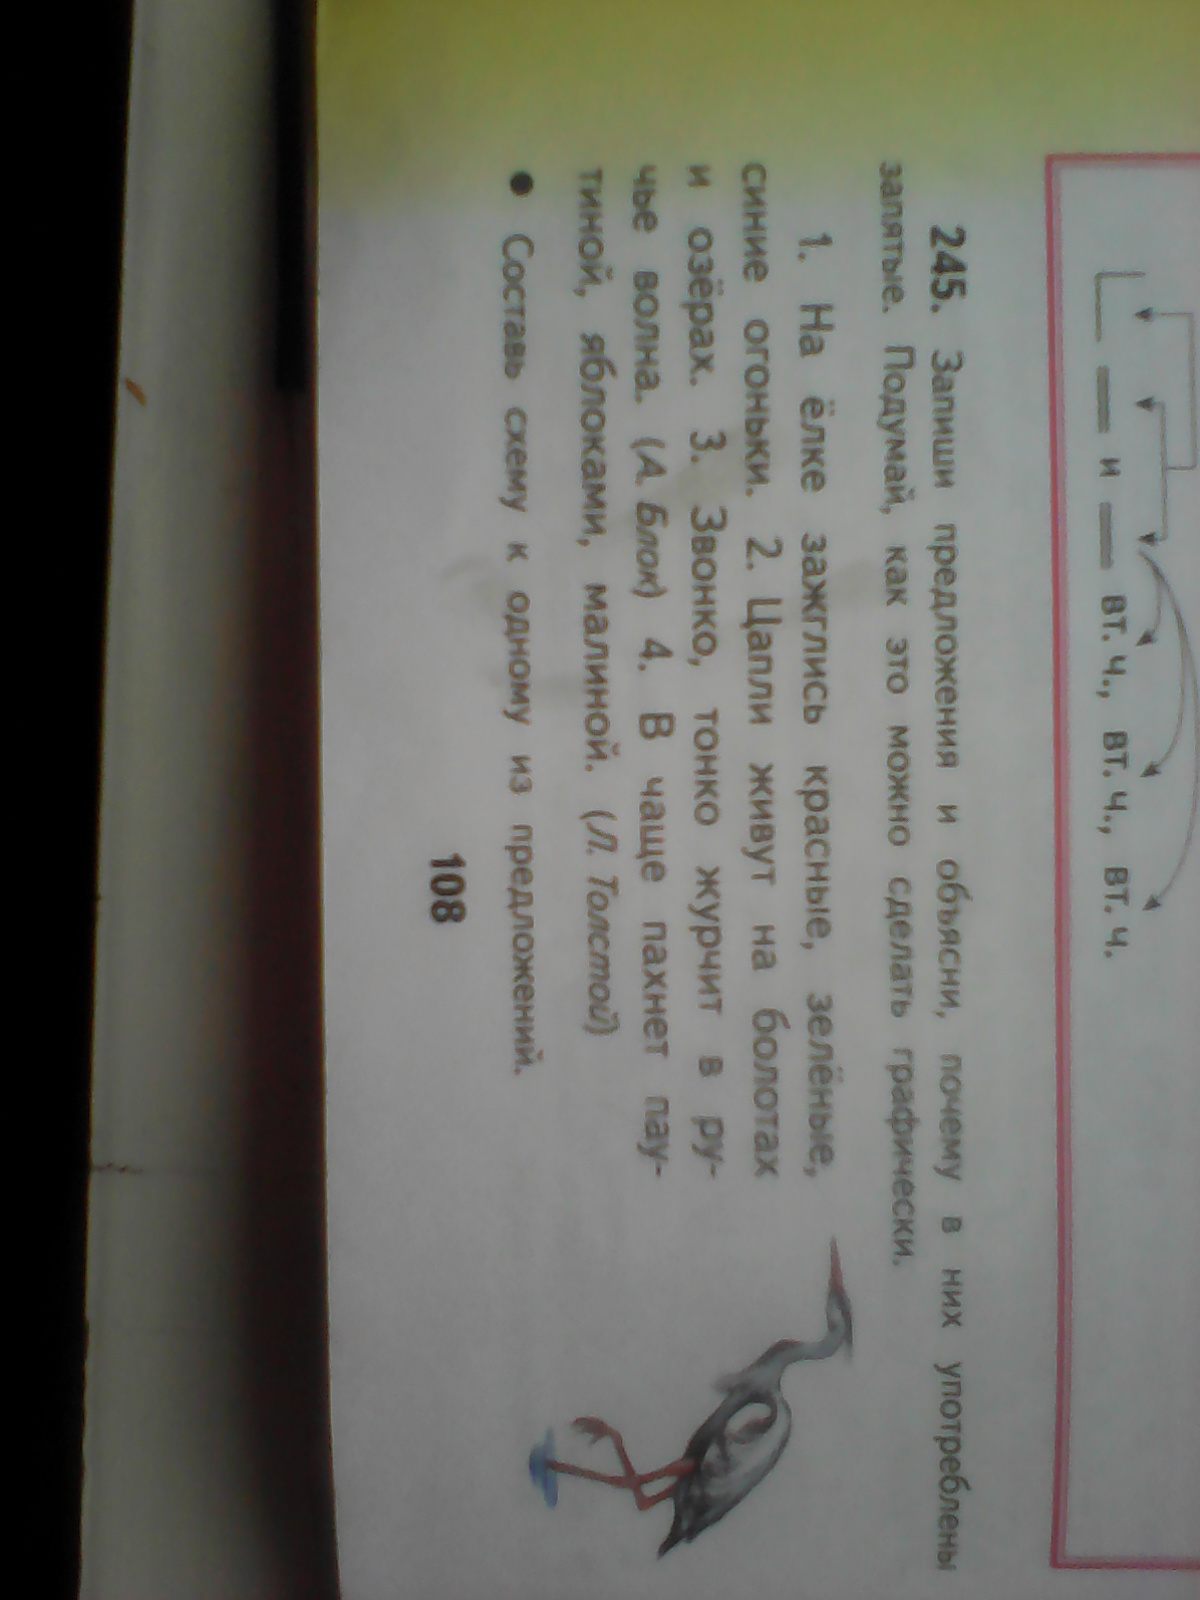 и вт. ч., вт. ч., вт. ч.
245. Запиши предложения и объясни, почему в них употреблены
запятые. Подумай, как это можно сделать графически.
1. На ёлке зажглись красные, зелёные,
синие огоньки. 2. Цапли живут на болотах
и озёрах. 3. Звонко, тонко журчит в ру-
чье волна. (А. Блок) 4. В чаще пахнет пау-
тиной, яблоками, малиной. (Л. Толстой)
● Составь схему к одному из предложений.
108